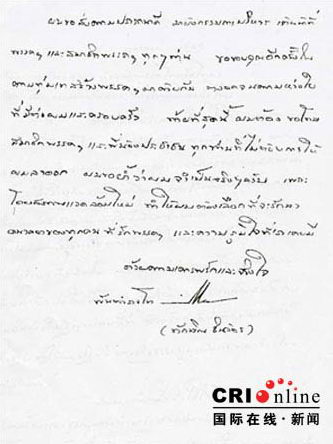 ผมขอส่งความปรารถนาดี มายังกรรมการบริหาร เจ้าหน้าที่
พรรคฯ และสมาชิกพรรคฯ ทุกๆท่าน ขอขอบคุณอีกครั้งใน
ความทุ่มเทสร้างพรรคฯ มาด้วยกัน ความห่วงใย
ที่มีต่อผมและครอบครัว ท้ายที่สุดนี้ ผมต้องขอโทษ
สมาชิกพรรคฯ และพี่น้องประชาชน ทุกท่านที่ไม่อยากให้
ผมลาออก ผมขอย้ำว่าผมจำเป็นจริงๆครับ เพราะ
ทำให้ผมต้องเลือกที่จะรักษา
อนาคตของทุกคน ที่รักพรรคฯ และความภูมิใจที่เราเคยมี
ด้วยความเคารพรักและจริงใจ
พันตำรวจโท
(ทักษิณ ชินวัตร)
CRI Online
国际在线·新闻